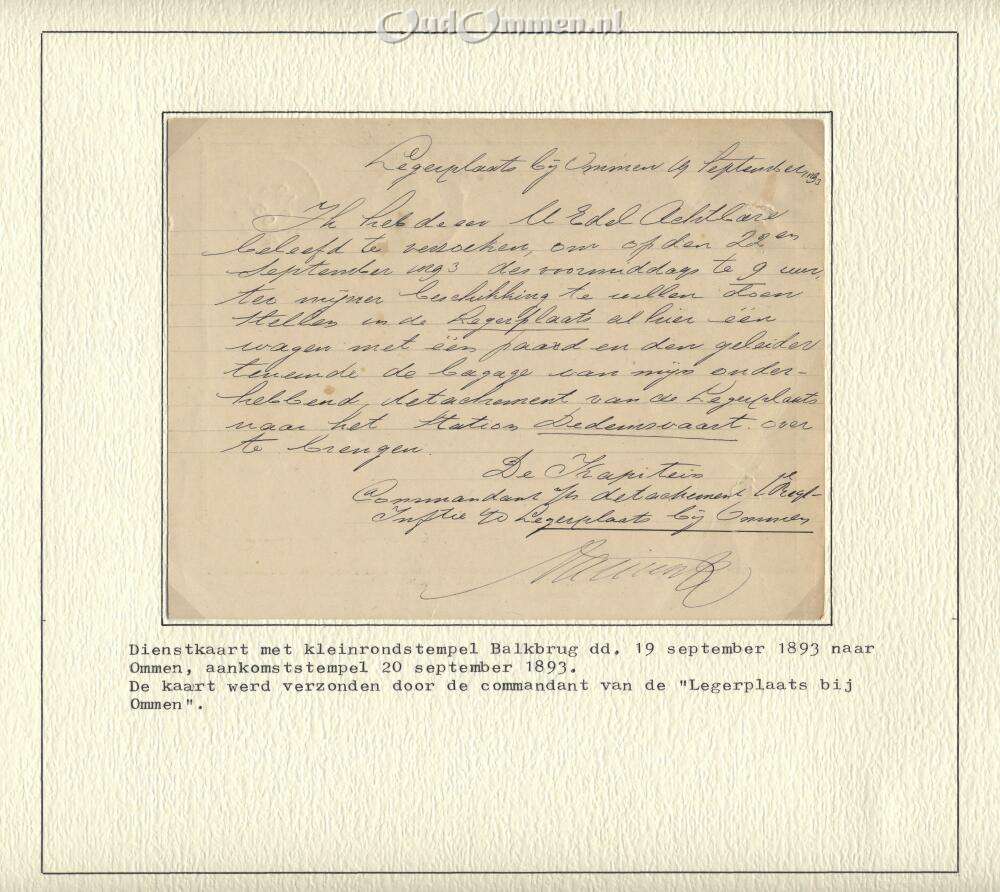 OudOmmen.nl
Legerplaats bij Ommen 19 September 1893
Ik heb de eer U Edel Achtbare
beleefd te verzoeken, om op den 22en
September 1893 des voormiddags te 9 uur,
ter mijner beschikking te willen doen
stellen in de Legerplaats alhier één
wagen met één paard en den geleider
teneinde de bagage van mijn onder-
hebbend detachement van de Legerplaats
naar het Station Dedemsvaart over
te brengen.
De Kapitein
Commandant detachement 1e Regt
Inftie Legerplaats bij Ommen
Dienstkaart met kleinrondstempel Balkbrug dd. 19 september 1893 naar
Ommen, aankomststempel 20 september 1893.
De kaart werd verzonden door de commandant van de "Legerplaats bij
Ommen".